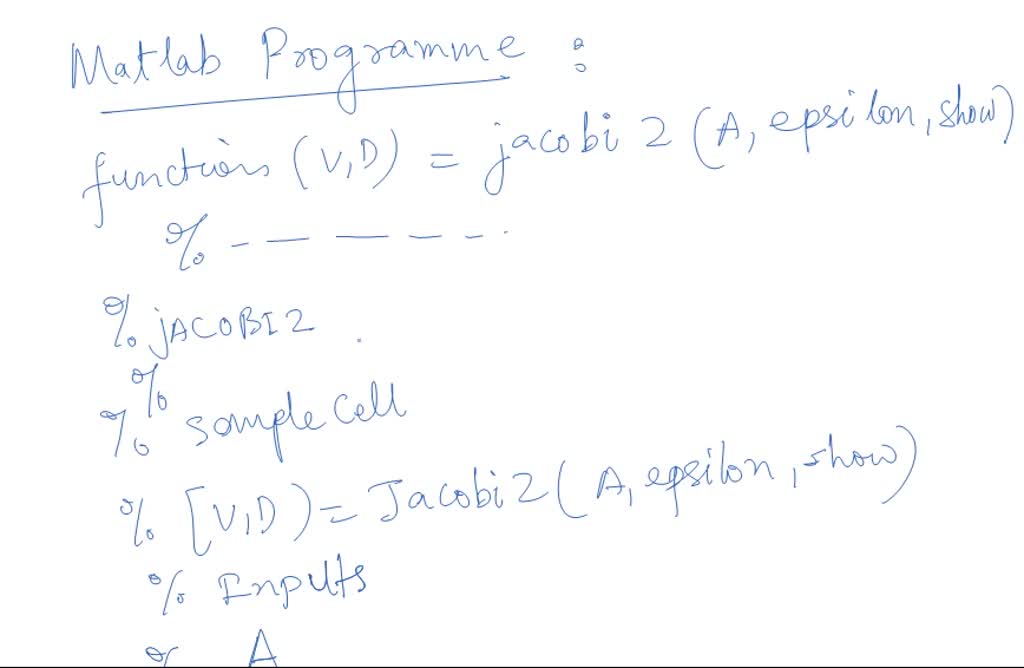 Matlab Programme :
functions (V,D) = jacobi 2 (A, epsilon, show)
% - — — – - .
% jACOBI2
%
% sample Cell
% [V,D) = Jacobi2 ( A, epsilon, show)
% Inputs
% A